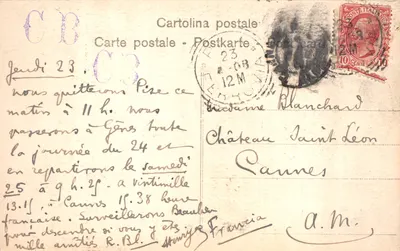 Cartolina postale
Carte postale - Postkarte
C B
C B
Jeudi 23.
nous quitterons Pise ce
matin à 11 h. nous
passerons à Gênes toute
la journée du 24 et
en repartirons le samedi
25 à 9 h. 25 - à Vintimille
13.15, à Cannes 15.38 heure
française. Surveillerons Beaulieu
pour descendre si vous y êtes
mille amitiés R. Bl.
23
2-08
12M
Madame Blanchard
Château Saint Léon
Cannes
A. M.